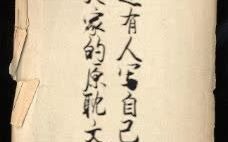 还有人写自己
大家的原耽文